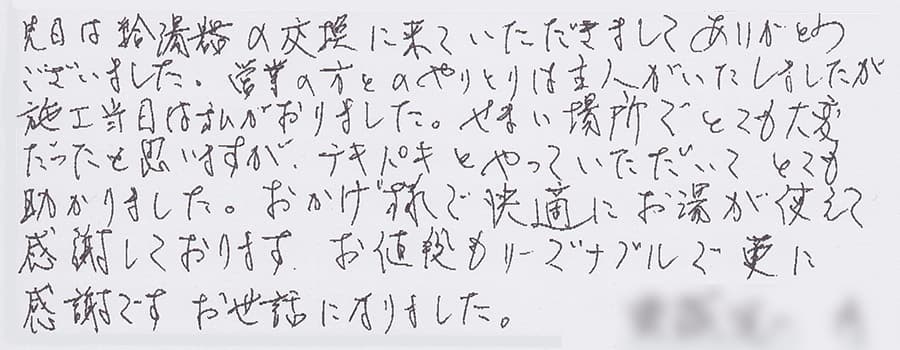 先日は給湯器の交換に来ていただきましてありがとう
ございました。営業の方とのやりとりは主人がいたしましたが
施工当日は私がおりました。せまい場所でとても大変
だったと思いますが、テキパキとやっていただいて とても
助かりました。おかげ様で快適にお湯が使えて
感謝しております. お値段もリーズナブルで更に
感謝です お世話になりました。